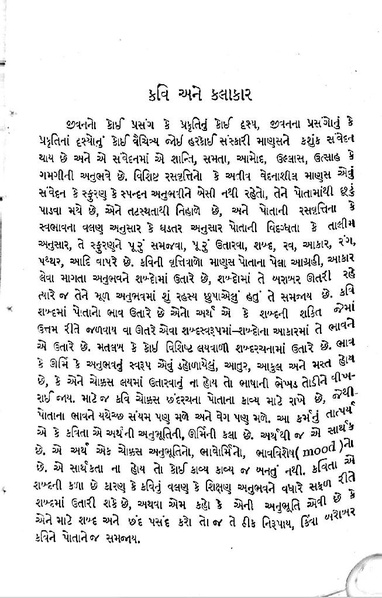 કવિ અને કલાકાર
જીવનનો કોઈ પ્રસંગ કે પ્રકૃતિનું કોઈ દૃશ્ય, જીવનના પ્રસંગોનું કે
પ્રકૃતિનાં દૃશ્યોનું કોઈ વૈચિત્ર્ય જોઈ હરકોઈ સંસ્કારી માણસને કશુંક સંવેદન
થાય છે અને એ સંવેદનમાં એ શાન્તિ, સમતા, આમોદ, ઉલ્લાસ, ઉત્સાહ કે
ગમગીની અનુભવે છે. વિશિષ્ટ રસવૃત્તિનો કે અતીવ વેદનાશીલ માણસ એવું
સંવેદન કે સ્ફુરણ કે સ્પન્દન અનુભવીને બેસી નથી રહેતો, તેને પોતામાંથી છૂટું
પાડવા મથે છે, એને તટસ્થતાથી નિહાળે છે, અને પોતાની રસવૃત્તિના કે
સ્વભાવના વલણ અનુસાર કે ઘડતર અનુસાર પોતાની વિદગ્ધતા કે તાલીમ
અનુસાર, તે સ્ફુરણને પૂરું સમજવા, પૂરું ઉતારવા, શબ્દ, રવ, આકાર, રંગ,
પથ્થર, આદિ વાપરે છે. કવિની વૃત્તિવાળો માણસ પોતાના પેલા આગ્રહી, આકાર
લેવા માગતા અનુભવને શબ્દોમાં ઉતારે છે, શબ્દોમાં તે બરાબર ઊતરી રહે
ત્યારે જ તેને મૂળ અનુભવમાં શું રહસ્ય છુપાએલું હતું તે સમજાય છે. કવિ
શબ્દમાં પોતાનો ભાવ ઉતારે છે એનો અર્થ એ કે શબ્દની શક્તિ જેમાં
ઉત્તમ રીતે જળવાય વા ઊતરે એવા શબ્દસ્વરૂપમાં–શબ્દોના આકારમાં તે ભાવને
એ ઉતારે છે. મતલબ કે કોઈ વિશિષ્ટ લયવાળી શબ્દરચનામાં ઉતારે છે. ભાવ
કે ઊર્મિ કે અનુભવનું સ્વરૂપ એવું ડહોળાયેલું, આતુર, આકુલ અને મસ્ત હોય
છે, કે એને ચોક્કસ લયમાં ઉતારવાનું ના હોય તો ભાષાની બેખડ તોડીને વીખ-
રાઈ જાય. માટે જ કવિ ચોક્કસ છંદરચના પોતાના કાવ્ય માટે રાખે છે, જેથી
પોતાના ભાવને યથેચ્છ સંયમ પણ મળે અને વેગ પણ મળે. આ કર્મનું તાત્પર્ય
એ કે કવિતા એ અર્થની અનુભૂતિની, ઊર્મિની કલા છે. અર્થથી જ એ સાર્થક
છે. એ અર્થ એક ચોક્કસ અનુભૂતિનો, ભાવોર્મિનો, ભાવવિશેષ(mood)નો
છે. એ સાર્થકતા ના હોય તો કોઈ કાવ્ય કાવ્ય જ બનતું નથી. કવિતા એ
શબ્દની કળા છે કારણ કે કવિનું વલણ કે શિક્ષણ અનુભવને વધારે સફળ રીતે
શબ્દમાં ઉતારી શકે છે, અથવા એમ કહો કે એની અનુભૂતિ એવી છે કે
એને માટે શબ્દ અને છંદ પસંદ કરો તો જ તે ઠીક નિરૂપાય, કિંવા બરોબર
કવિને પોતાને જ સમજાય.